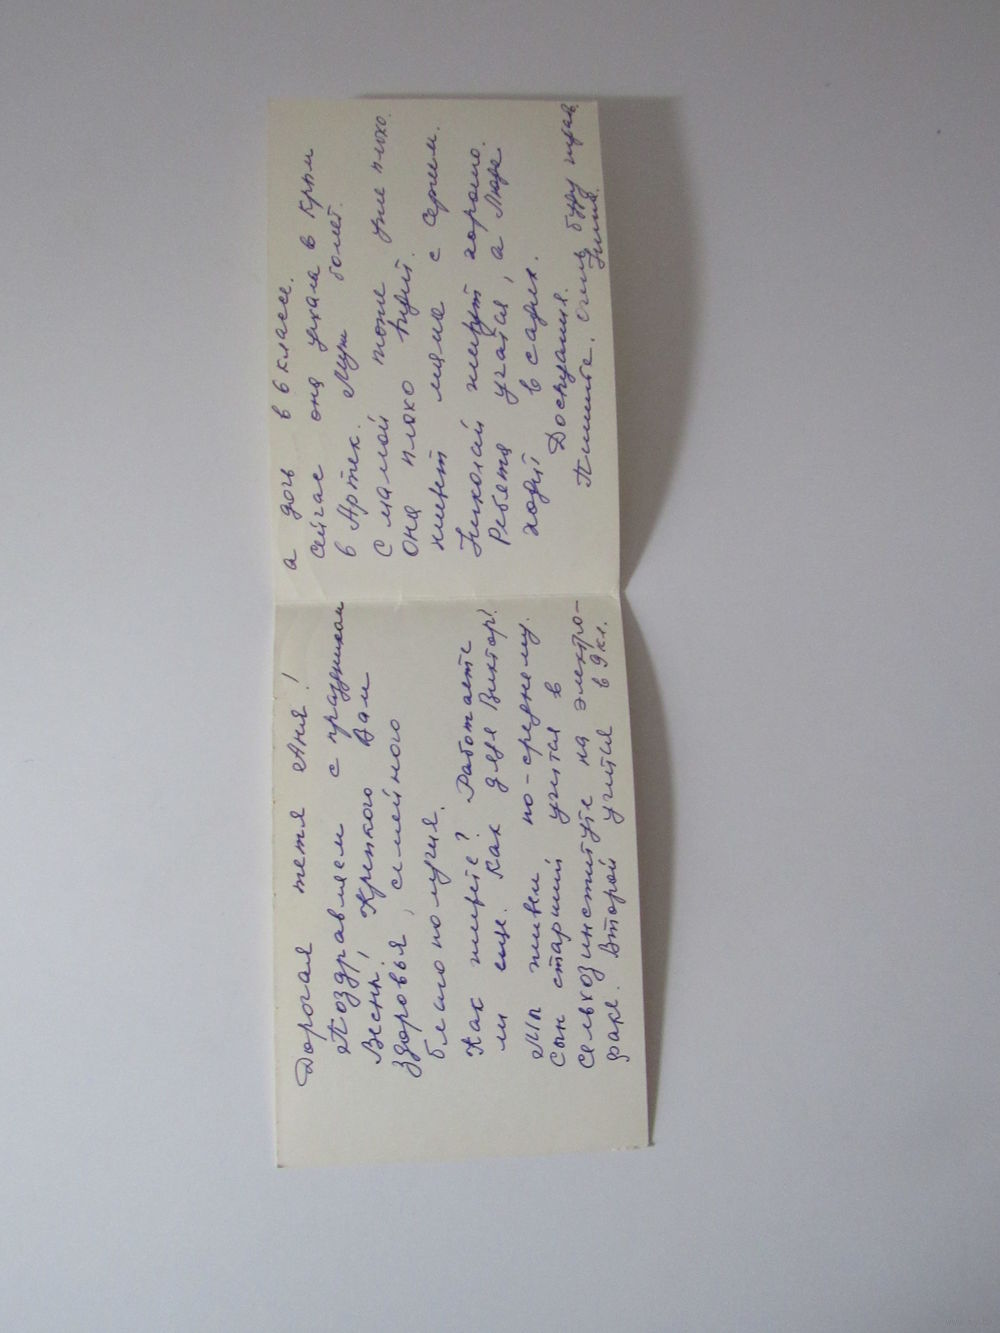 Дорогая тетя Аня!
Поздравляем с праздником
Весны, Крепкого Вам
здоровья, семейного
благополучия.
Как живете? Работаете
ли еще. Как дядя Виктор?
Мы живем по-среднему.
Сын старший учится в
сельхозинституте на электро-
факе. Второй учится в 9 кл.
а дочь в 6 классе.
Сейчас она уехала в Крым
в Артек. Муж болеет.
С мамой тоже уже плохо.
Она плохо видит.
живет мама с Сергеем.
Николай живут хорошо.
Ребята учатся, а Люда
ходит в садик.
Досвидания.
Пишите. Очень буду